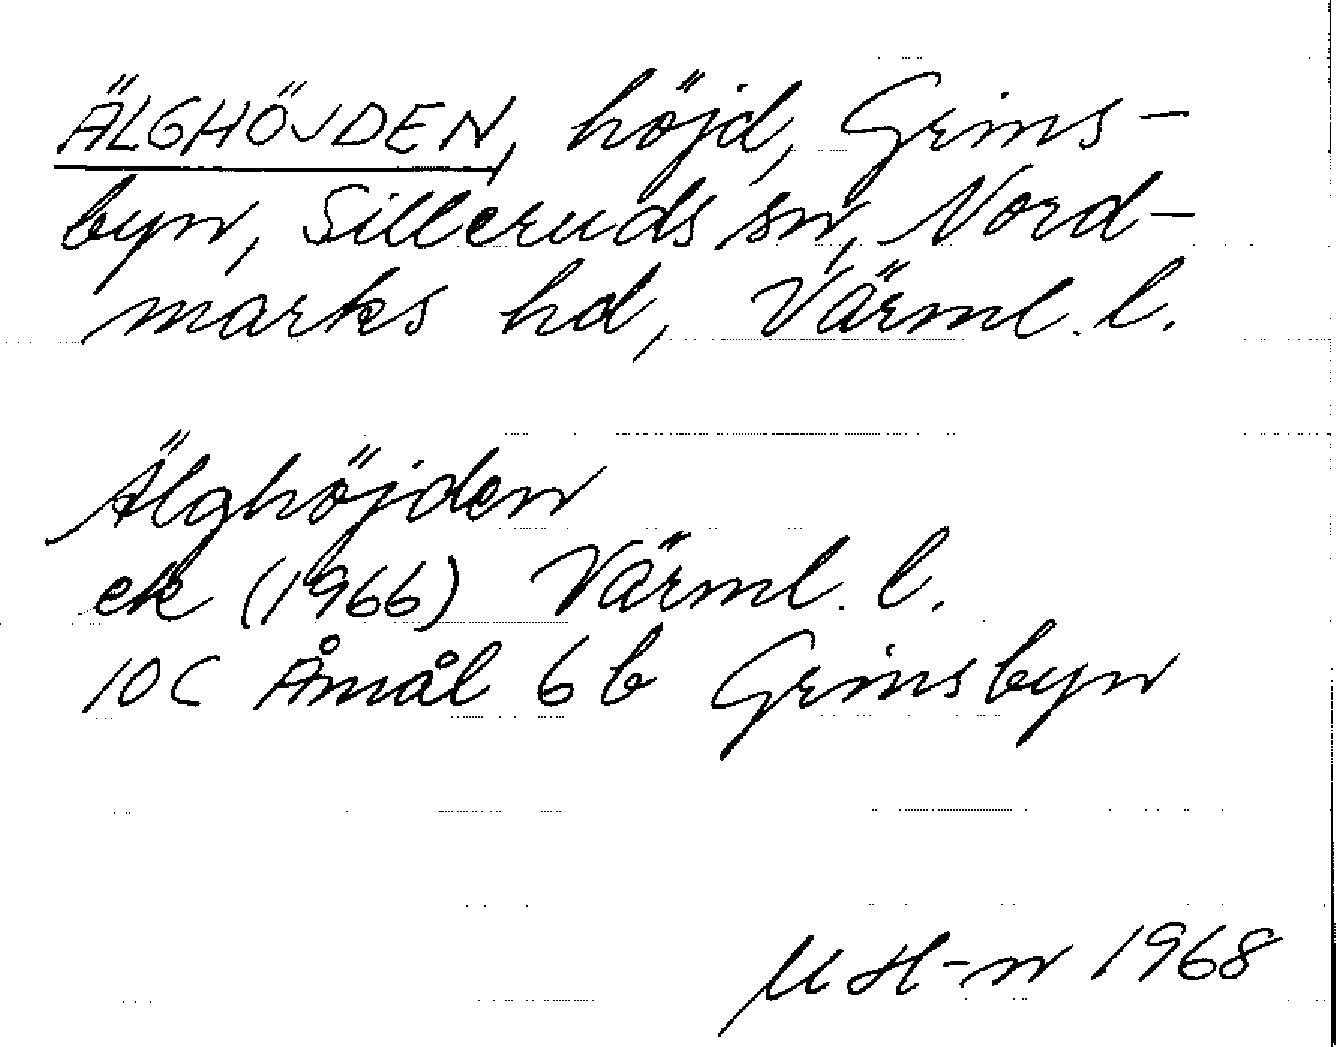 ÄLGHÖJDEN, höjd, Grins-
byn, Silleruds sn, Nord-
marks hd, Värml. l.
Älghöjden
ek (1966) Värml. l.
10C Åmål 6b Grinsbyn
MH-n 1968